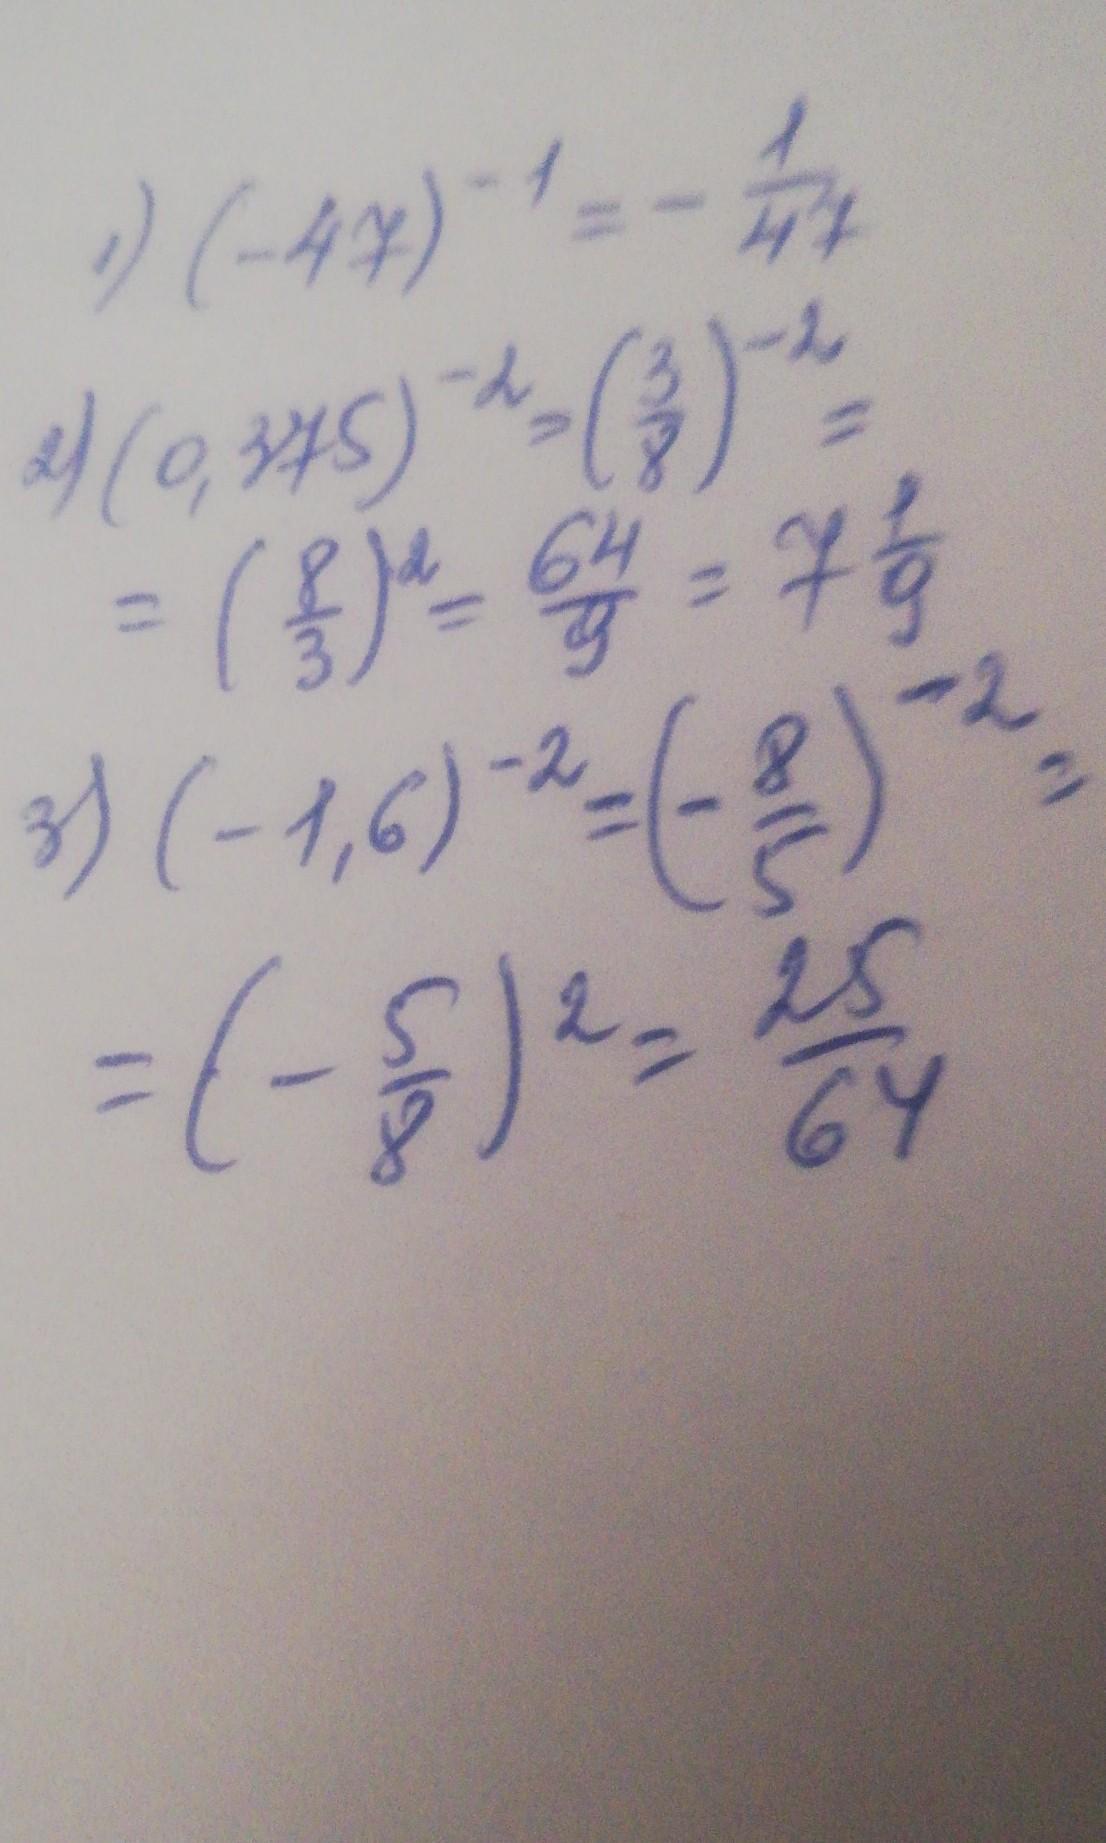 1) (-47)^{-1} = - \frac{1}{47}
2) (0,375)^{-2} = (\frac{3}{8})^{-2} =
= (\frac{8}{3})^{2} = \frac{64}{9} = 7 \frac{1}{9}
3) (-1,6)^{-2} = (-\frac{8}{5})^{-2} =
= (-\frac{5}{8})^{2} = \frac{25}{64}